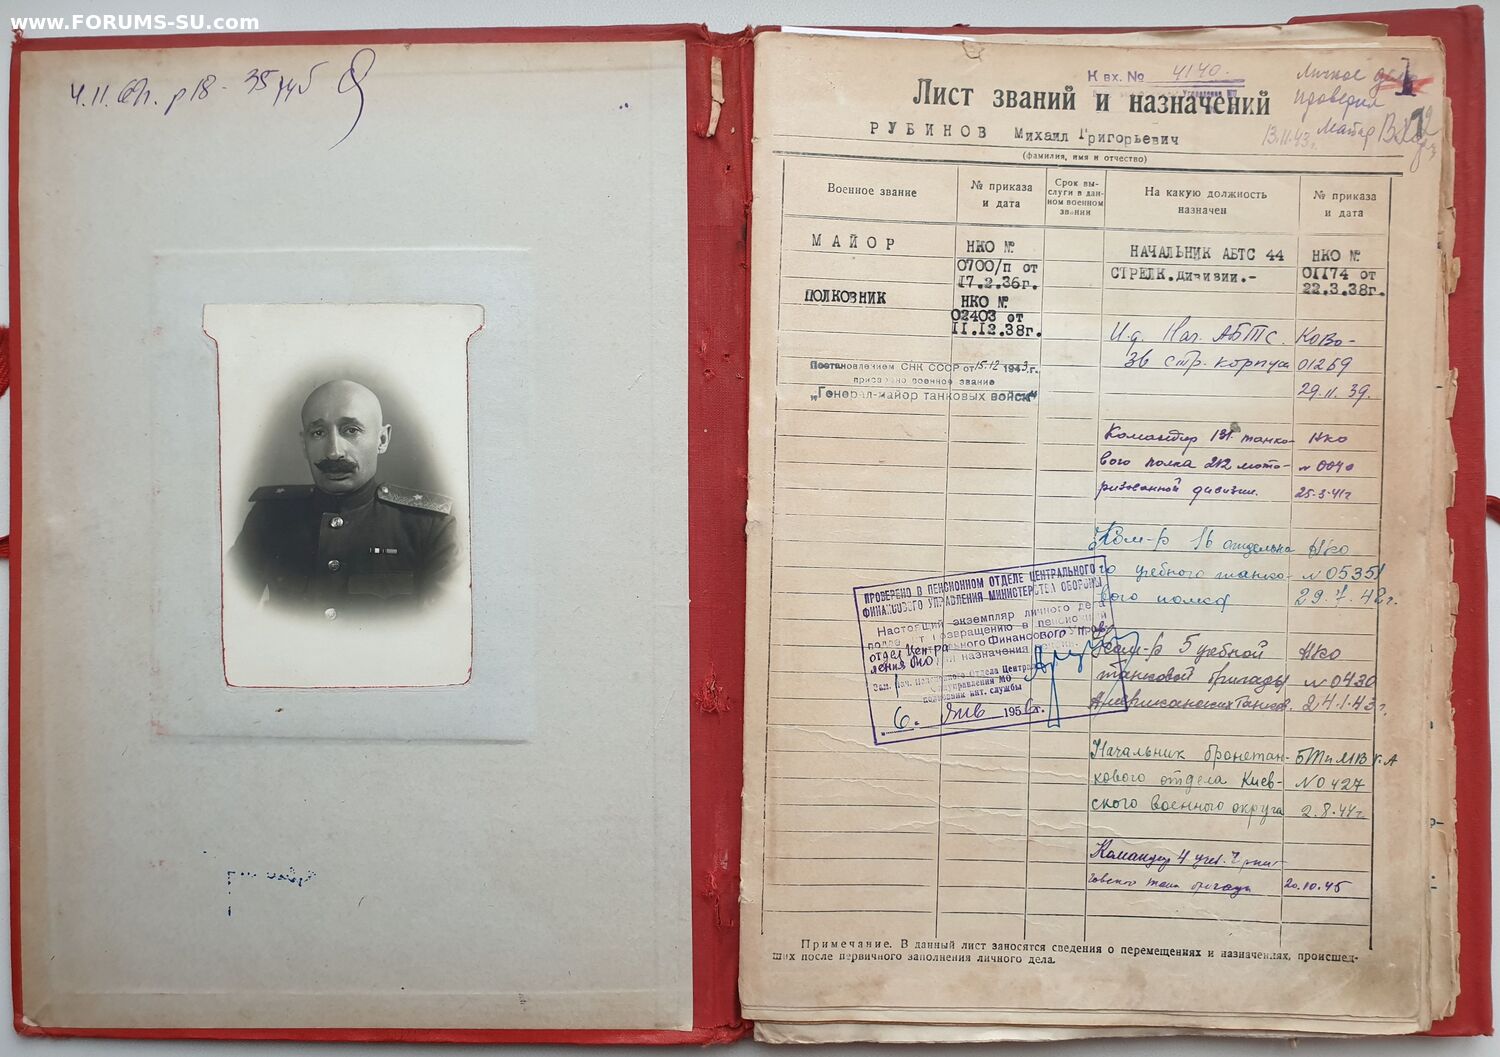 www.FORUMS-SU.com
К вх. № 4140
Личное дело
проверил
13.11.43г. Майор
Лист званий и назначений
РУБИНОВ Михаил Григорьевич
(фамилия, имя и отчество)
Военное звание
№ приказа
и дата
Срок вы-
слуги в дан-
ном военном
звании
На какую должность
назначен
№ приказа
и дата
МАЙОР
НКО №
0700/п от
17.2.36г.
НАЧАЛЬНИК АБТС 44
СТРЕЛК.дивизии.-
НКО №
01174 от
22.3.38г.
ПОЛКОВНИК
НКО №
02403 от
11.12.38г.
И.д. Нач. АБТС.
36 стр. корпуса
КОВО-
01259
29.11.39.
Постановлением СНК СССР от 15.12 1943г.
присвоено военное звание
„Генерал-майор танковых войск"
Командир 131 танко-
вого полка 212 мото-
ризованной дивизии.
НКО
№ 0040
25.3.41г
Ком-р 16 отдельно
го учебного танко-
вого полка
НКО
№ 05351
29.7.42г.
Ком-р 5 учебной
танковой бригады
Американских танков.
НКО
№ 0430
24.1.43г.
Начальник бронетан-
кового отдела Киев-
ского военного округа
БТиМВ К.А
№ 0427
2.8.44г.
Командир 4 учеб.
танк бригады
20.10.45
ПРОВЕРЕНО В ПЕНСИОННОМ ОТДЕЛЕ ЦЕНТРАЛЬНОГО
ФИНАНСОВОГО УПРАВЛЕНИЯ МИНИСТЕРСТВА ОБОРОНЫ
Настоящий экземпляр личного дела
подлежит возвращению в пенсионный
отдел Центрального Финансового Управ-
ления МО для назначения пенсии
Зам. Нач. Пенсионного Отдела Центр.
Финуправления МО
полковник инт. службы
6. янв 1956г.
Примечание. В данный лист заносятся сведения о перемещениях и назначениях, происшед-
ших после первичного заполнения личного дела.